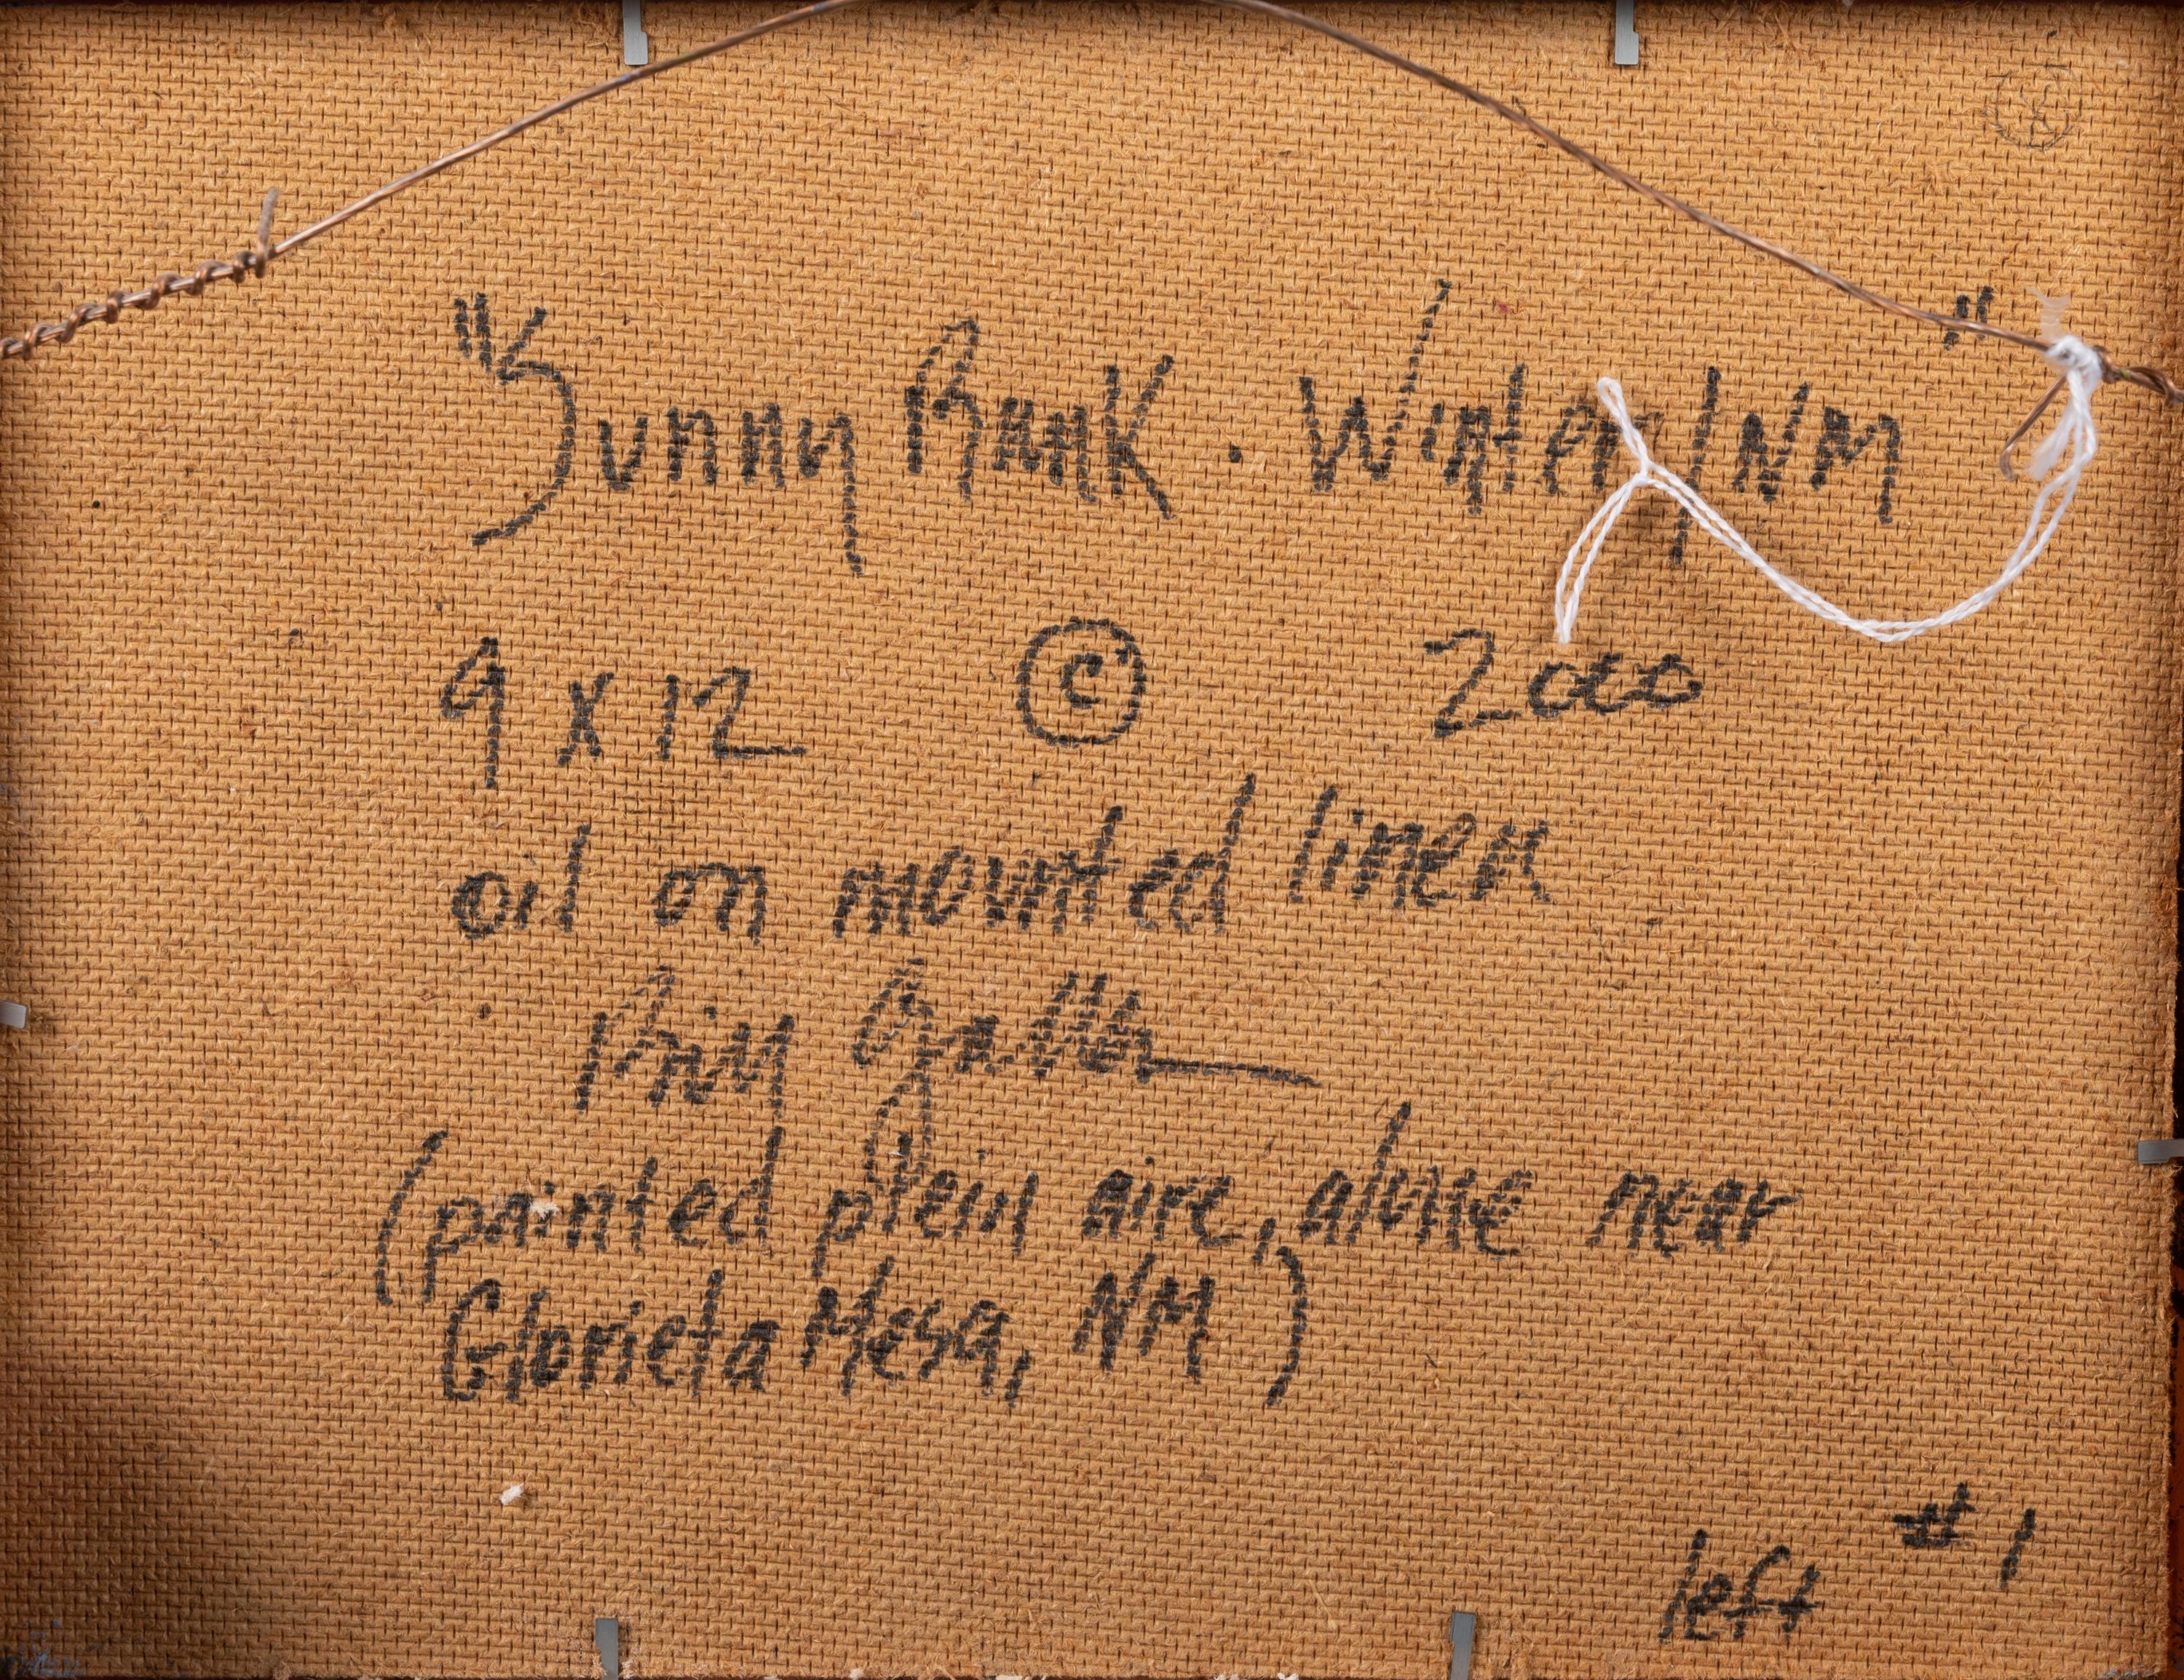 "Sunny Bank · Winter/NM"
9 x 12 © 2000
oil on mounted linen
(painted plein aire, alone near
Glorieta Mesa, NM)
#1
left